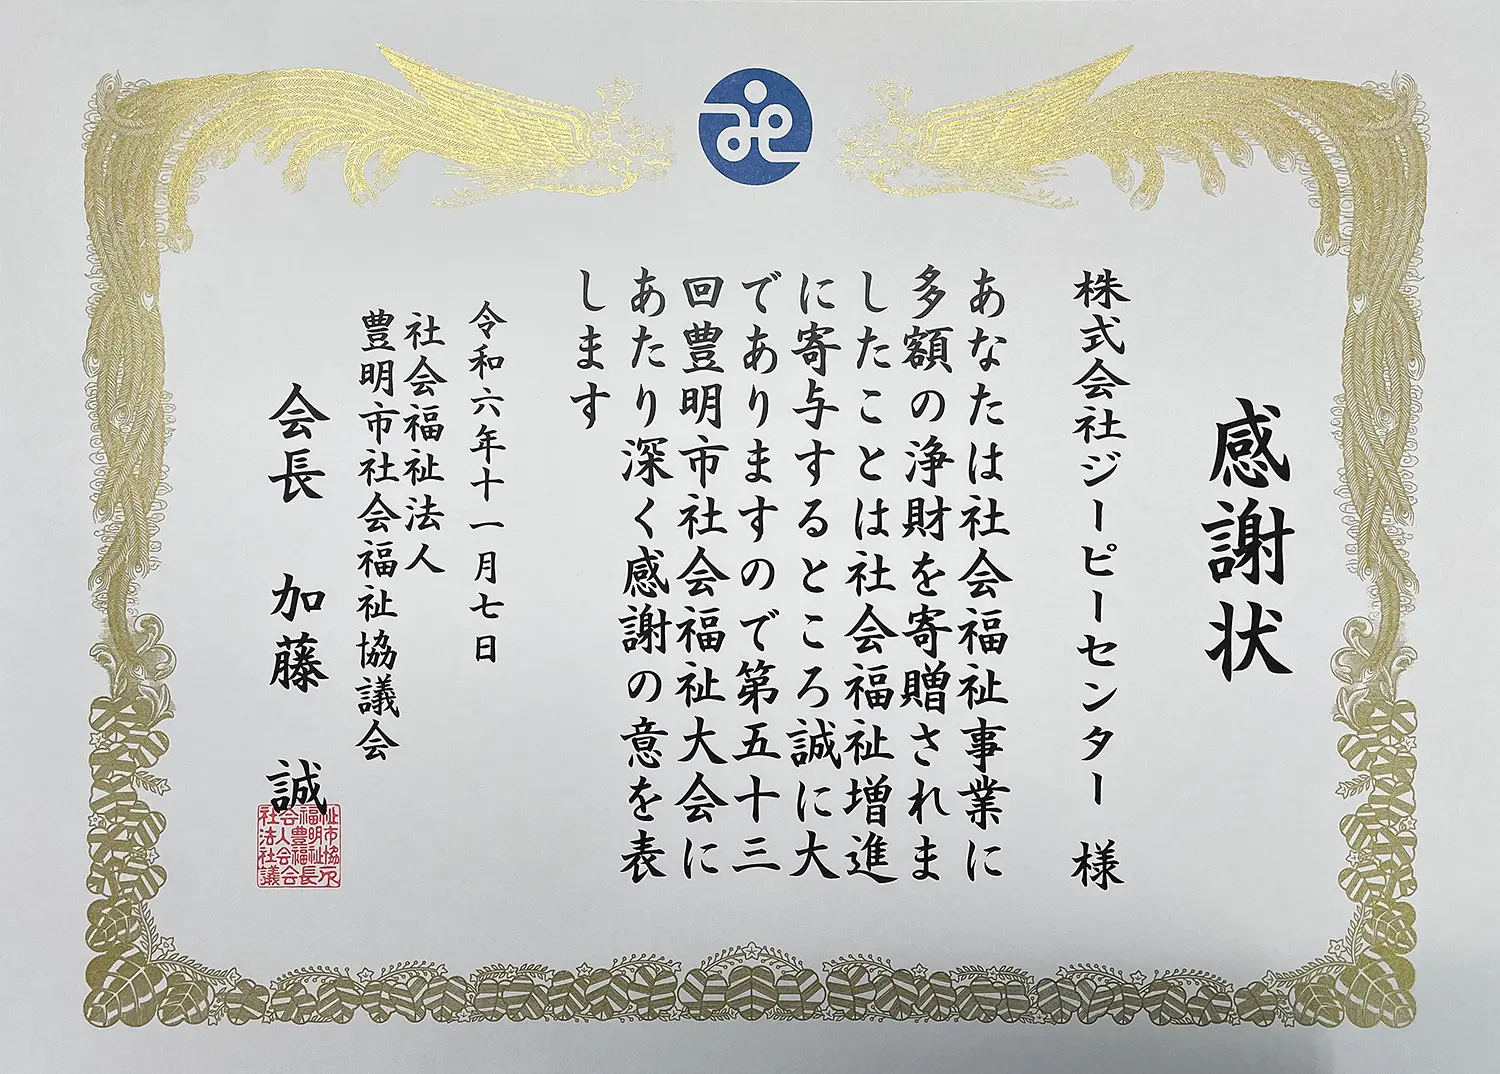 感謝状
株式会社ジーピーセンター 様
あなたは社会福祉事業に
多額の浄財を寄贈されま
したことは社会福祉増進
に寄与するところ誠に大
でありますので第五十三
回豊明市社会福祉大会に
あたり深く感謝の意を表
します
令和六年十一月七日
社会福祉法人
豊明市社会福祉協議会
会長 加藤 誠
社会福祉
法人豊明市
社会福祉協
議会会長印